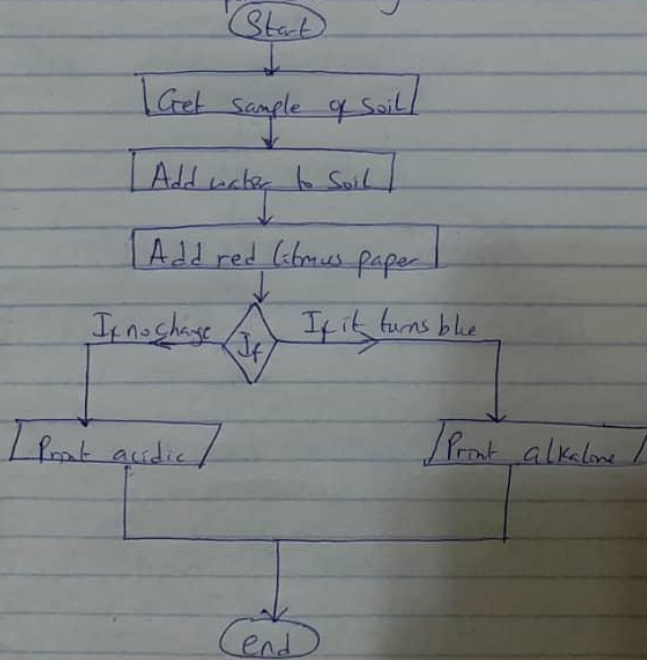 Start
Get sample of soil
Add water to soil
Add red litmus paper
If no change
If
If it turns blue
Print acidic
Print alkalone
end